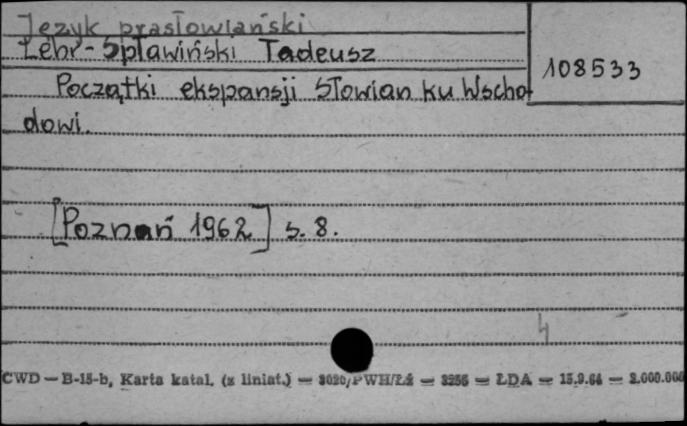 Język prasłowiański
Lehr-Spławiński Tadeusz
108533
Początki ekspansji Słowian ku Wscho
dowi.
[Poznań 1962] s. 8.
4
CWD — B-15-b, Karta katal. (z liniat.) — 3020/PWH/Łź — 3256 — ŁDA — 15.9.64 — 2.000.000